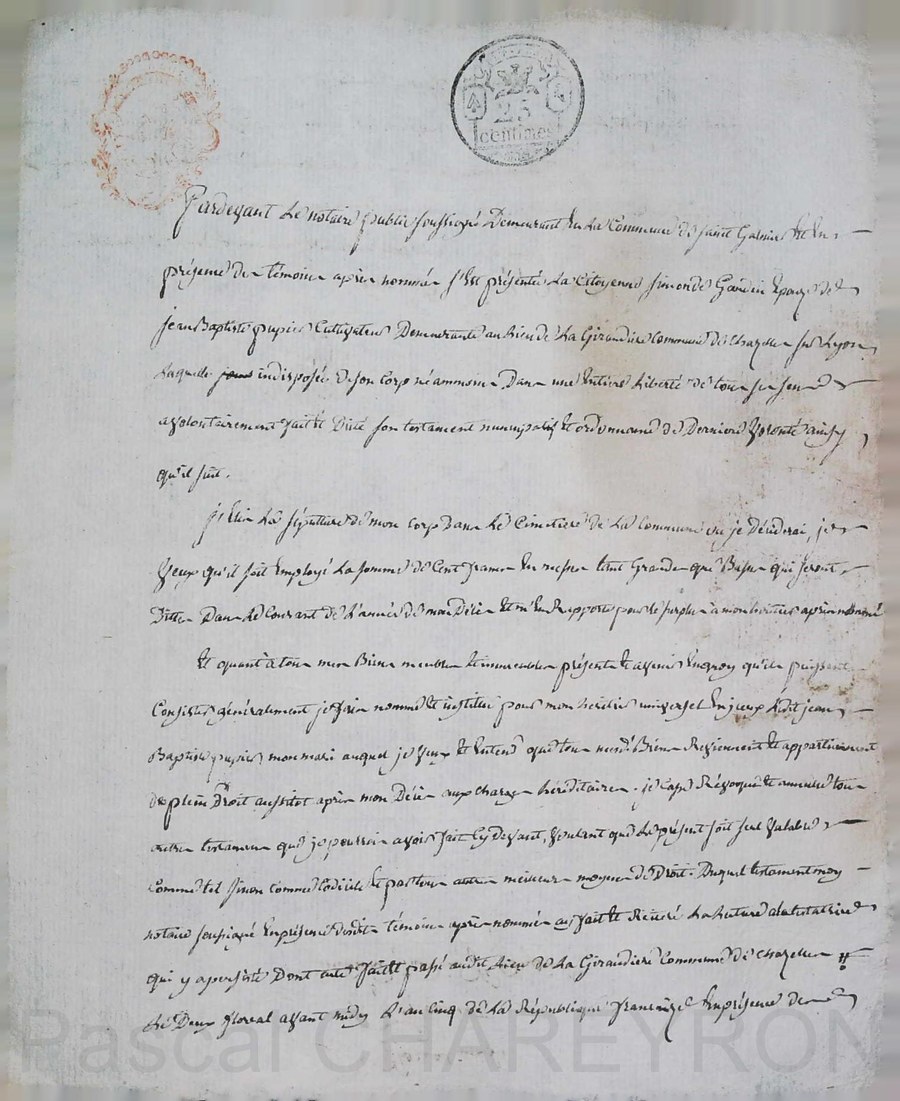 25
centimes
Pardevant Le notaire public soussigné Demeurant En La Commune de saint Galmier Et En
présence des témoins après nommés s'Est présentée La Citoyenne simonde Epouze de
jean Baptiste pupier Cultivateur Demeurante au Lieu de La Giraudiere Commune de Chazelle sur Lyon
Laquelle indisposée de son Corp néammoins Dans une Entiere Liberté de tous ses sens
a Volontairement fait Et Dicté son testament nuncupatif Et ordonnance de Derniere Volonté ainsy
qu'il suit.
j'Elis La sépulture de mon corp Dans Le Cimetiere de La Commune ou je Déciderai, je
Veux qu'il soit Employé La somme de Cent francs En messes tant Grandes que Basses qui seront
Dittes Dans Le Courant de L'année de mon Décès Et m'En Rapporte pour Le surplus a mon héritier après nommé
Et quant a tous mes Biens meubles Et immeubles présents Et avenir Enquoy qu'ils puissent
Consister généralement je nomme Et institue pour mon héritier universel Ledit jean
Baptiste pupier mon mari auquel je Veux Et Entend que tous mesdits Biens Reviennent Et appartiennent
de plein Droit aussitot après mon Décès aux charges héréditaires. je Casse Révoque Et annulle tous
autres testaments que je pourrois avoir fait Cy devant, Voulant que Le présent soit seul Valable
Comme tel sinon comme Codicile Et par tous autres meilleurs moyens de Droit. Duquel testament moy
notaire soussigné En présence desdits témoins après nommés ay fait Et Réitéré La Lecture a la testatrice
qui y a persisté Dont acte fait Et passé audit Lieu de La Giraudiere Commune de chazelle
Le Deux floreal avant midy L'an Cinq de La République francaize En présence de
Pascal CHAREYRON